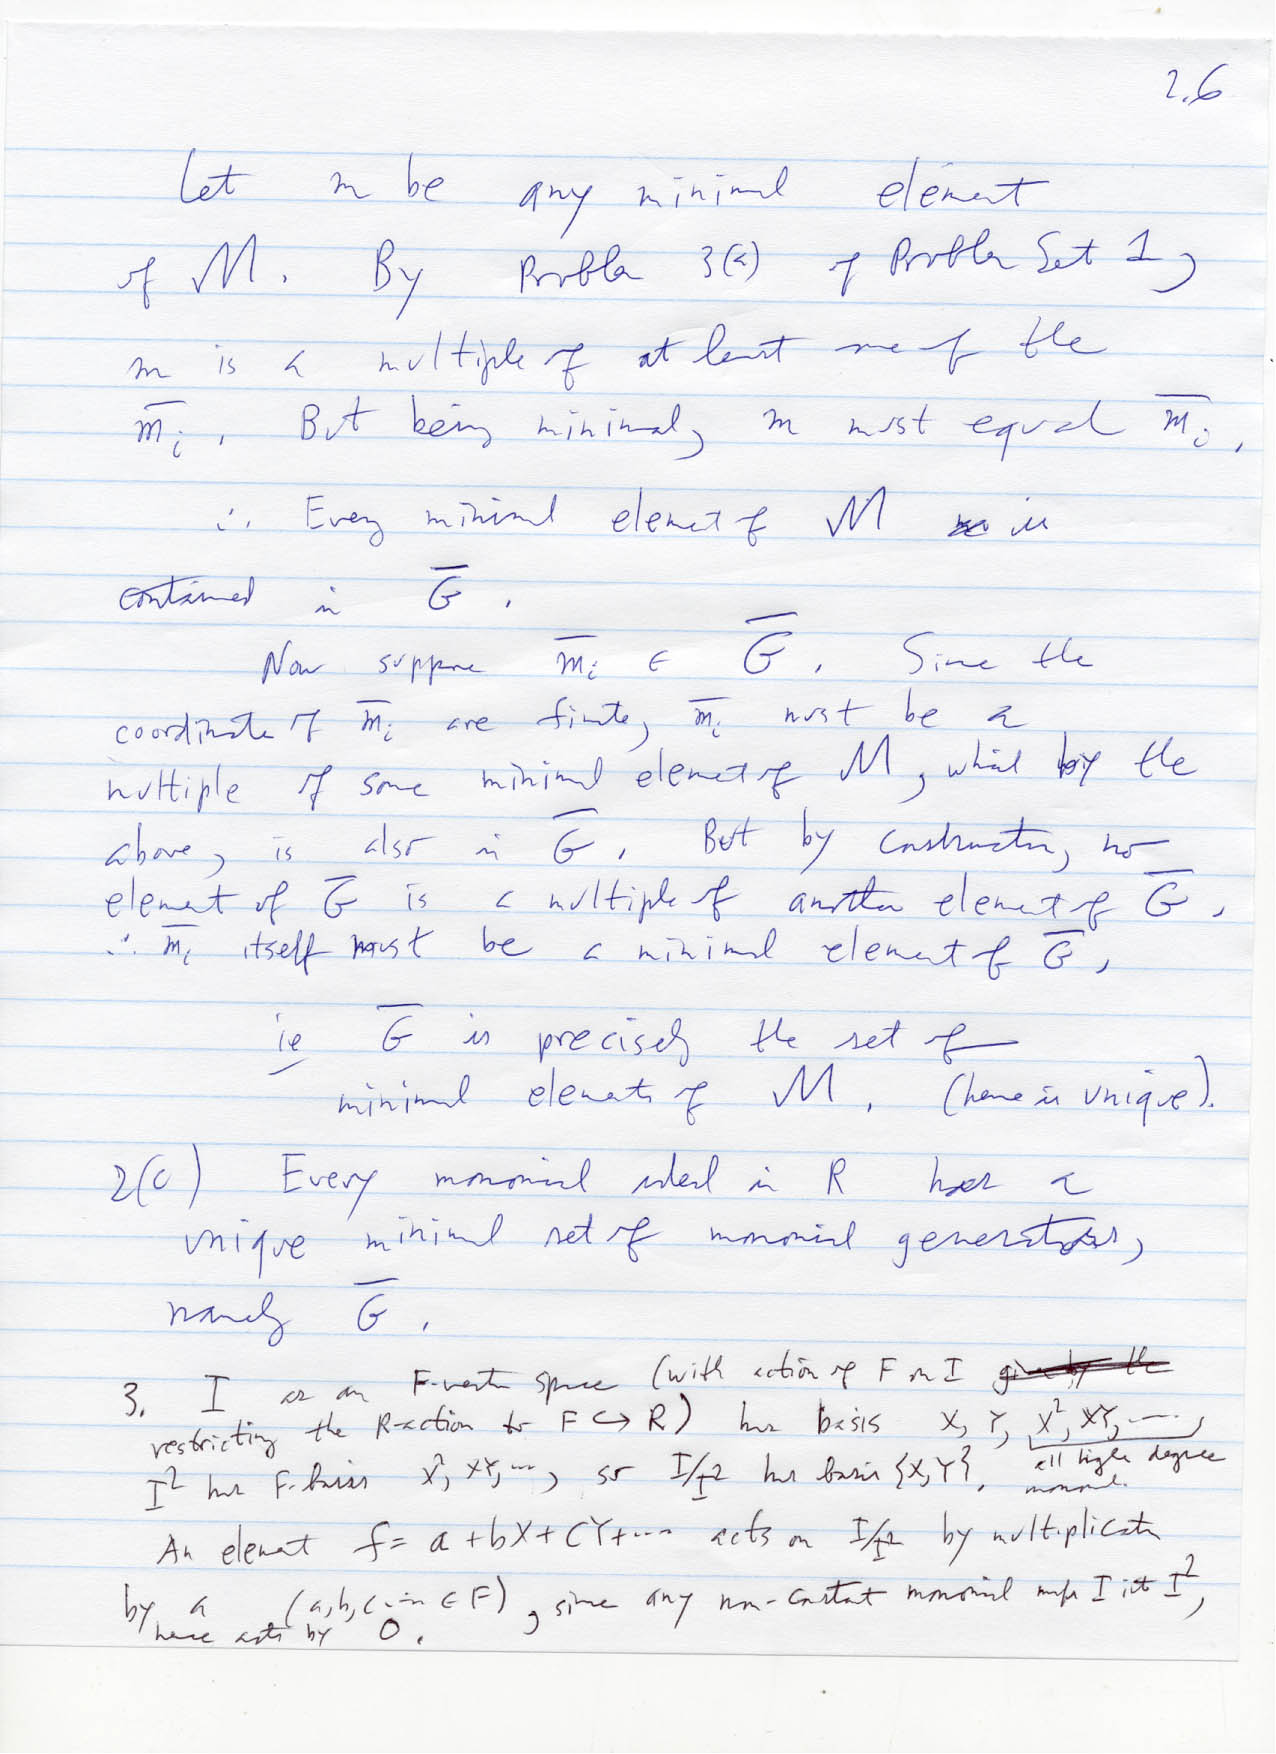 2.6
Let m be any minimal element
of M. By Problem 3(a) of Problem Set 1,
m is a multiple of at least one of the
m̄ᵢ. But being minimal, m must equal m̄ᵢ.
∴ Every minimal element of M is
contained in Ḡ.
Now suppose m̄ᵢ ∈ Ḡ. Since the
coordinates of m̄ᵢ are finite, m̄ᵢ must be a
multiple of some minimal element of M, which by the
above, is also in Ḡ. But by construction, no
element of Ḡ is a multiple of another element of Ḡ.
∴ m̄ᵢ itself must be a minimal element of Ḡ,
ie Ḡ is precisely the set of
minimal elements of M. (hence is unique).
2(c) Every monomial ideal in R has a
unique minimal set of monomial generators,
namely Ḡ.
3. I as an F-vector space (with action of F on I given by the
restricting the R-action to F ↪ R) has basis X, Y, X², XY, ....,
I² has F-basis X², XY, ..., so I/I² has basis {X, Y}. all higher degree
monomials.
An element f = a + bX + cY + ... acts on I/I² by multiplication
by a (a, b, c, ... ∈ F), since any non-constant monomial maps I into I²,
hence acts by 0.